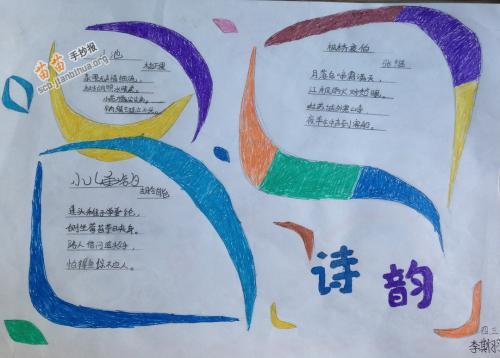 苗苗手抄报
scb.jianbihua.org
池
泉眼无声惜细流，
树阴照水爱晴柔。
小荷才露尖尖角，
早有蜻蜓立上头。
枫桥夜泊
张继
月落乌啼霜满天，
江枫渔火对愁眠。
姑苏城外寒山寺，
夜半钟声到客船。
小儿垂钓
胡令能
蓬头稚子学垂纶，
侧坐莓苔草映身。
路人借问遥招手，
怕得鱼惊不应人。
诗韵
四三
李斯